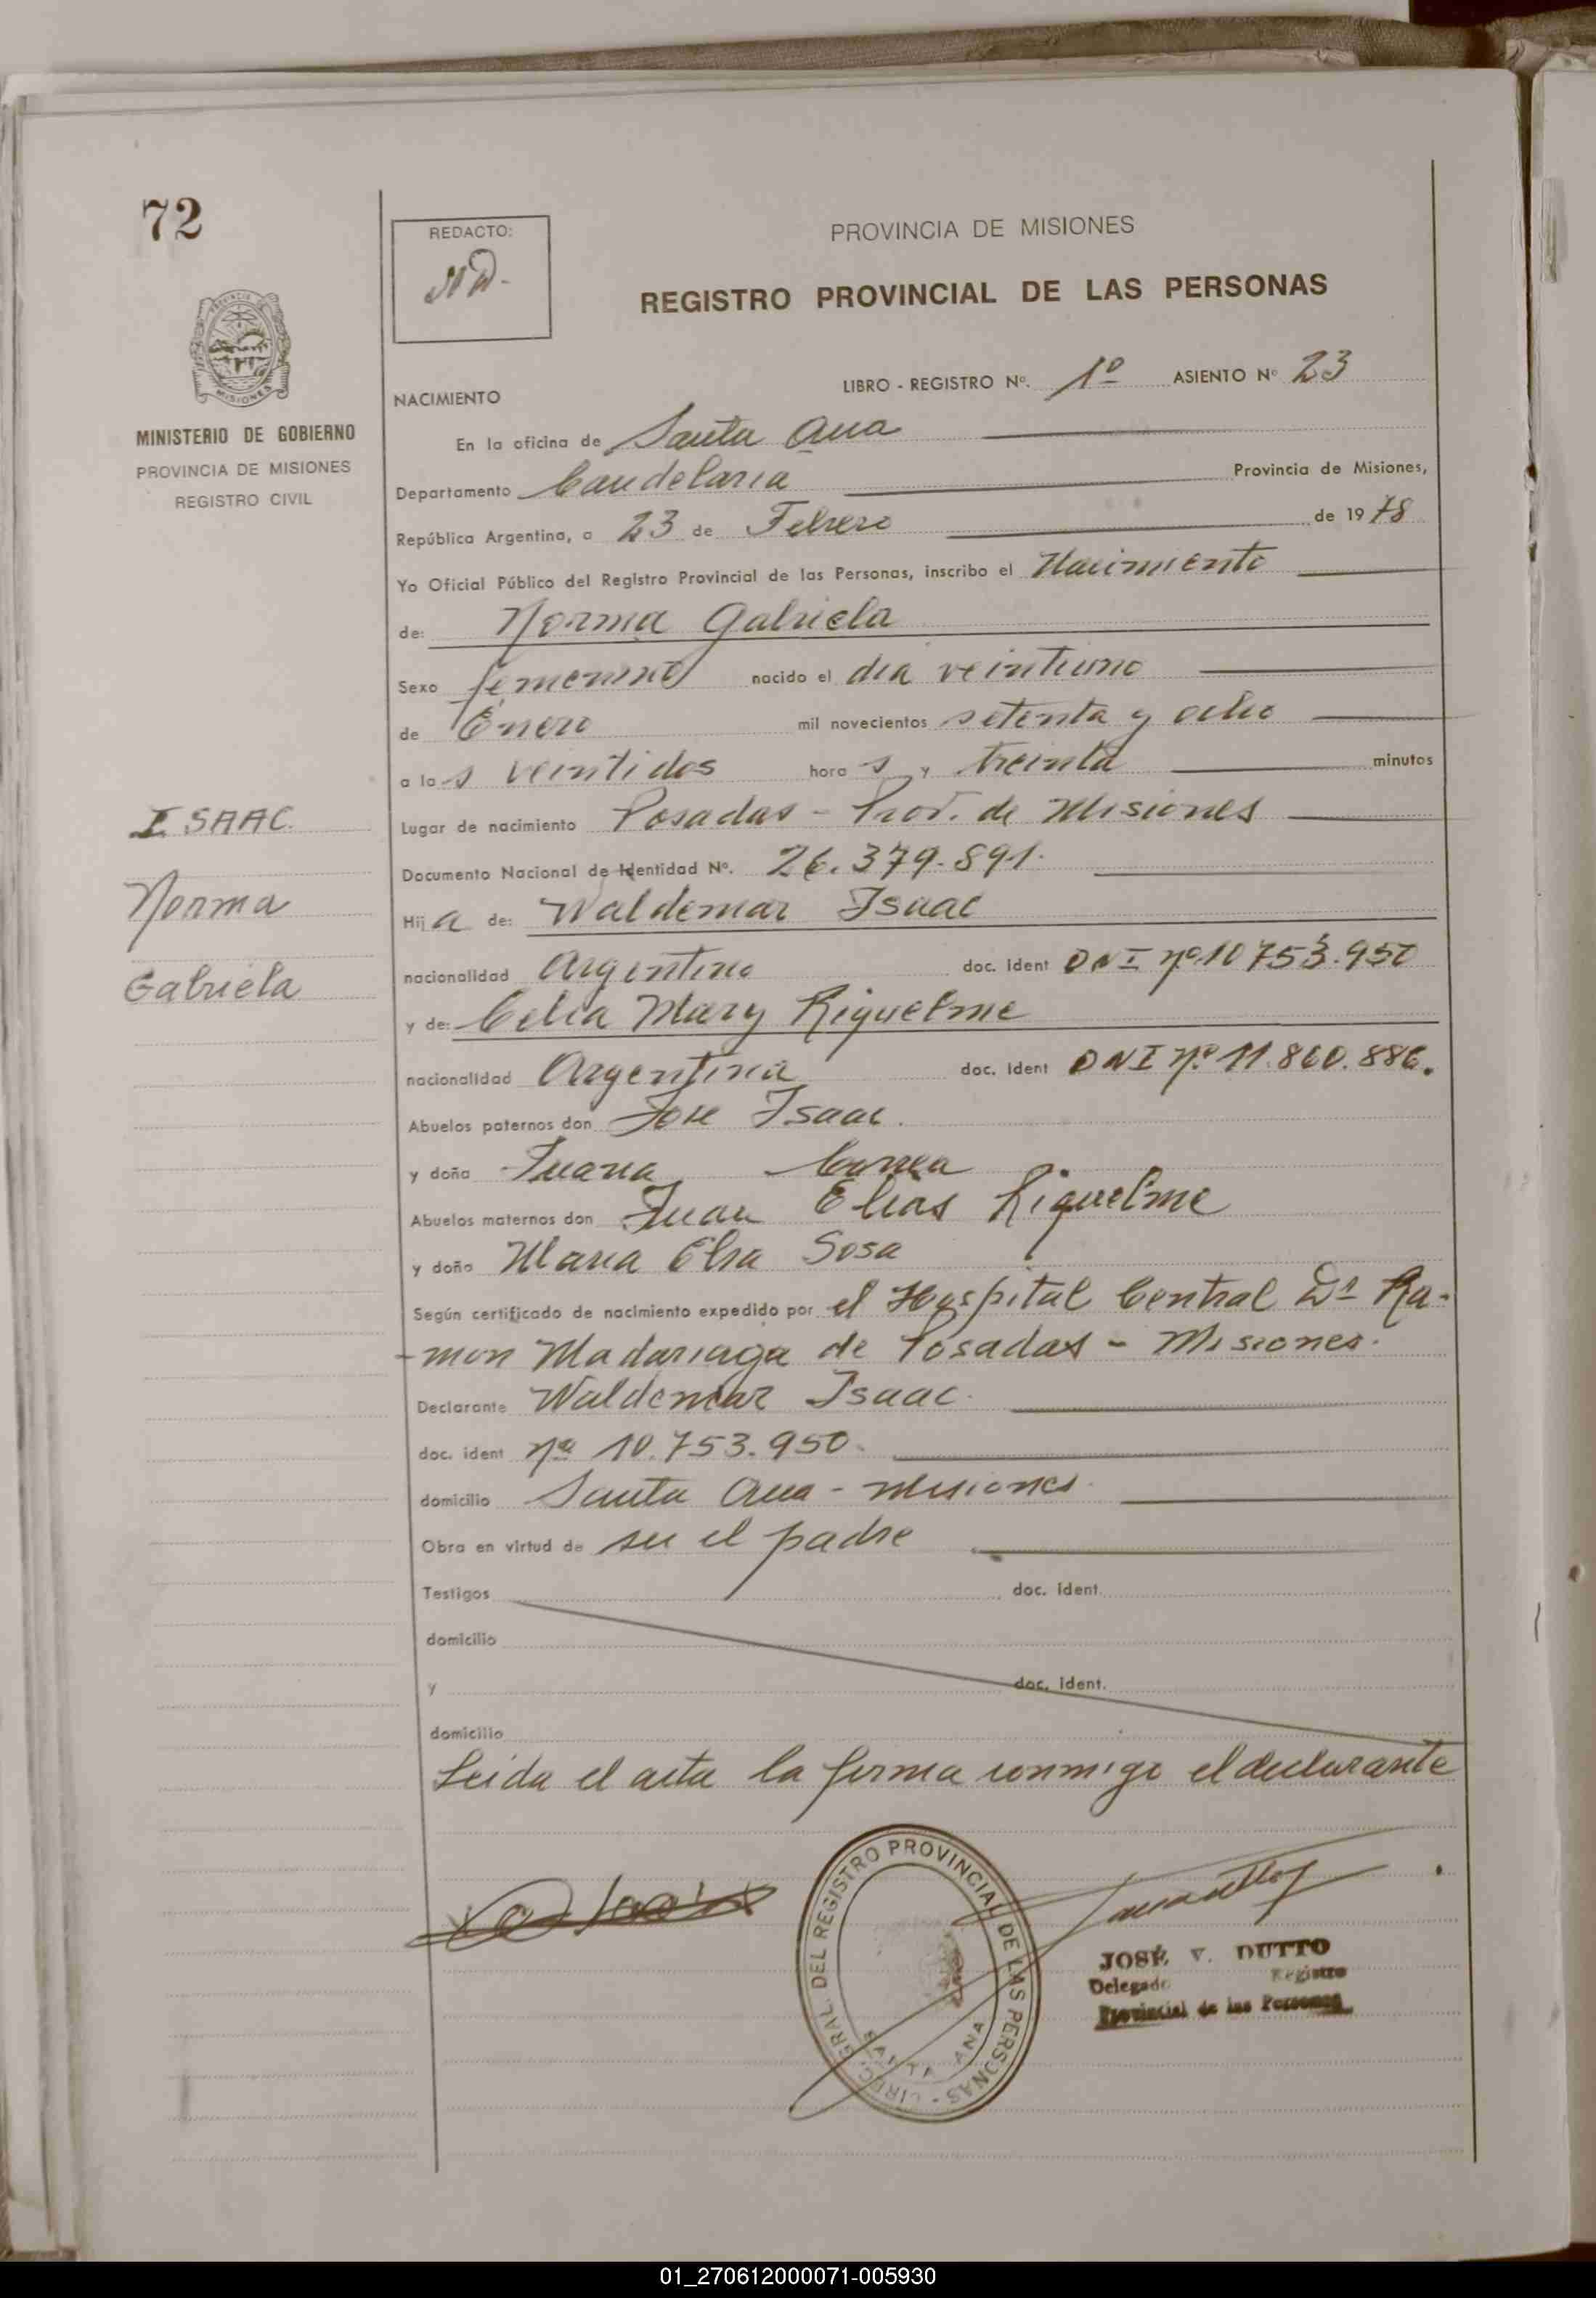 72
REDACTO:
PROVINCIA DE MISIONES
REGISTRO PROVINCIAL DE LAS PERSONAS
PROVINCIA DE
MISIONES
MINISTERIO DE GOBIERNO
PROVINCIA DE MISIONES
REGISTRO CIVIL
LIBRO - REGISTRO Nº. 1º ASIENTO Nº 23
NACIMIENTO
En la oficina de Santa Ana
Departamento Candelaria Provincia de Misiones,
República Argentina, a 23 de Febrero de 1978
Yo Oficial Público del Registro Provincial de las Personas, inscribo el Nacimiento
de: Norma Gabriela
Sexo femenino nacido el dia veintiuno
de Enero mil novecientos setenta y ocho
a las veintidos horas y treinta minutos
Lugar de nacimiento Posadas - Prov. de Misiones
Documento Nacional de Identidad Nº. 26.379.891.
Hija de: Waldemar Isaac
nacionalidad Argentino doc. ident DNI nº 10 753.950
y de: Celia Mary Riquelme
nacionalidad Argentina doc. ident DNI nº 11.860.886.
Abuelos paternos don Jose Isaac.
y doña Juana Correa
Abuelos maternos don Juan Elias Riquelme
y doña Maria Elsa Sosa
Según certificado de nacimiento expedido por el Hospital Central Dr Ra-
-mon Madariaga de Posadas - Misiones.
Declarante Waldemar Isaac.
doc. ident nº 10.753.950.
domicilio Santa Ana - Misiones.
Obra en virtud de ser el padre
Testigos doc. ident.
domicilio
y doc. ident.
domicilio
Leida el acta la firma conmigo el declarante
ISAAC.
Norma
Gabriela
DIREC. GRAL. DEL REGISTRO PROVINCIAL DE LAS PERSONAS -
SANTA ANA
JOSÉ V. DUTTO
Delegado Registro
Provincial de las Personas
01_270612000071-005930